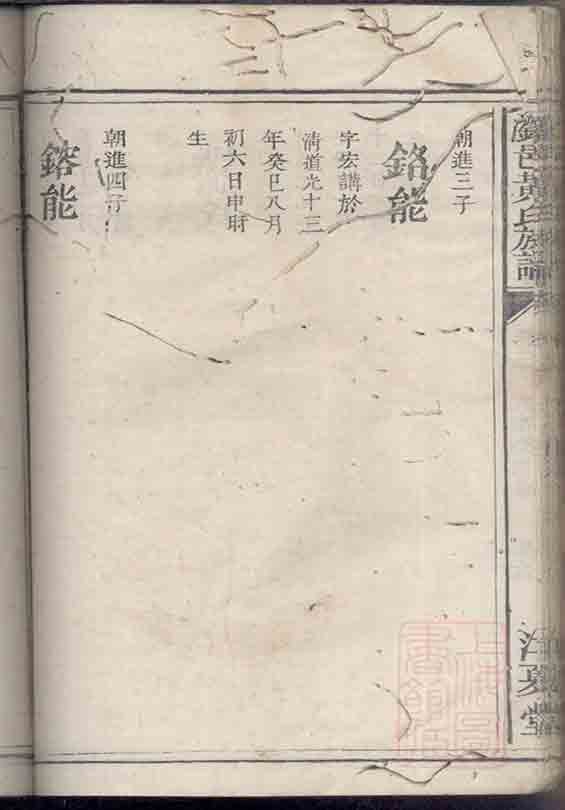 邑黃氏族譜
江夏堂
朝進三子
鉻能
字宏講於
淸道光十三
年癸巳八月
初六日申時
生
朝進四子
鎔能
上海圖書館藏